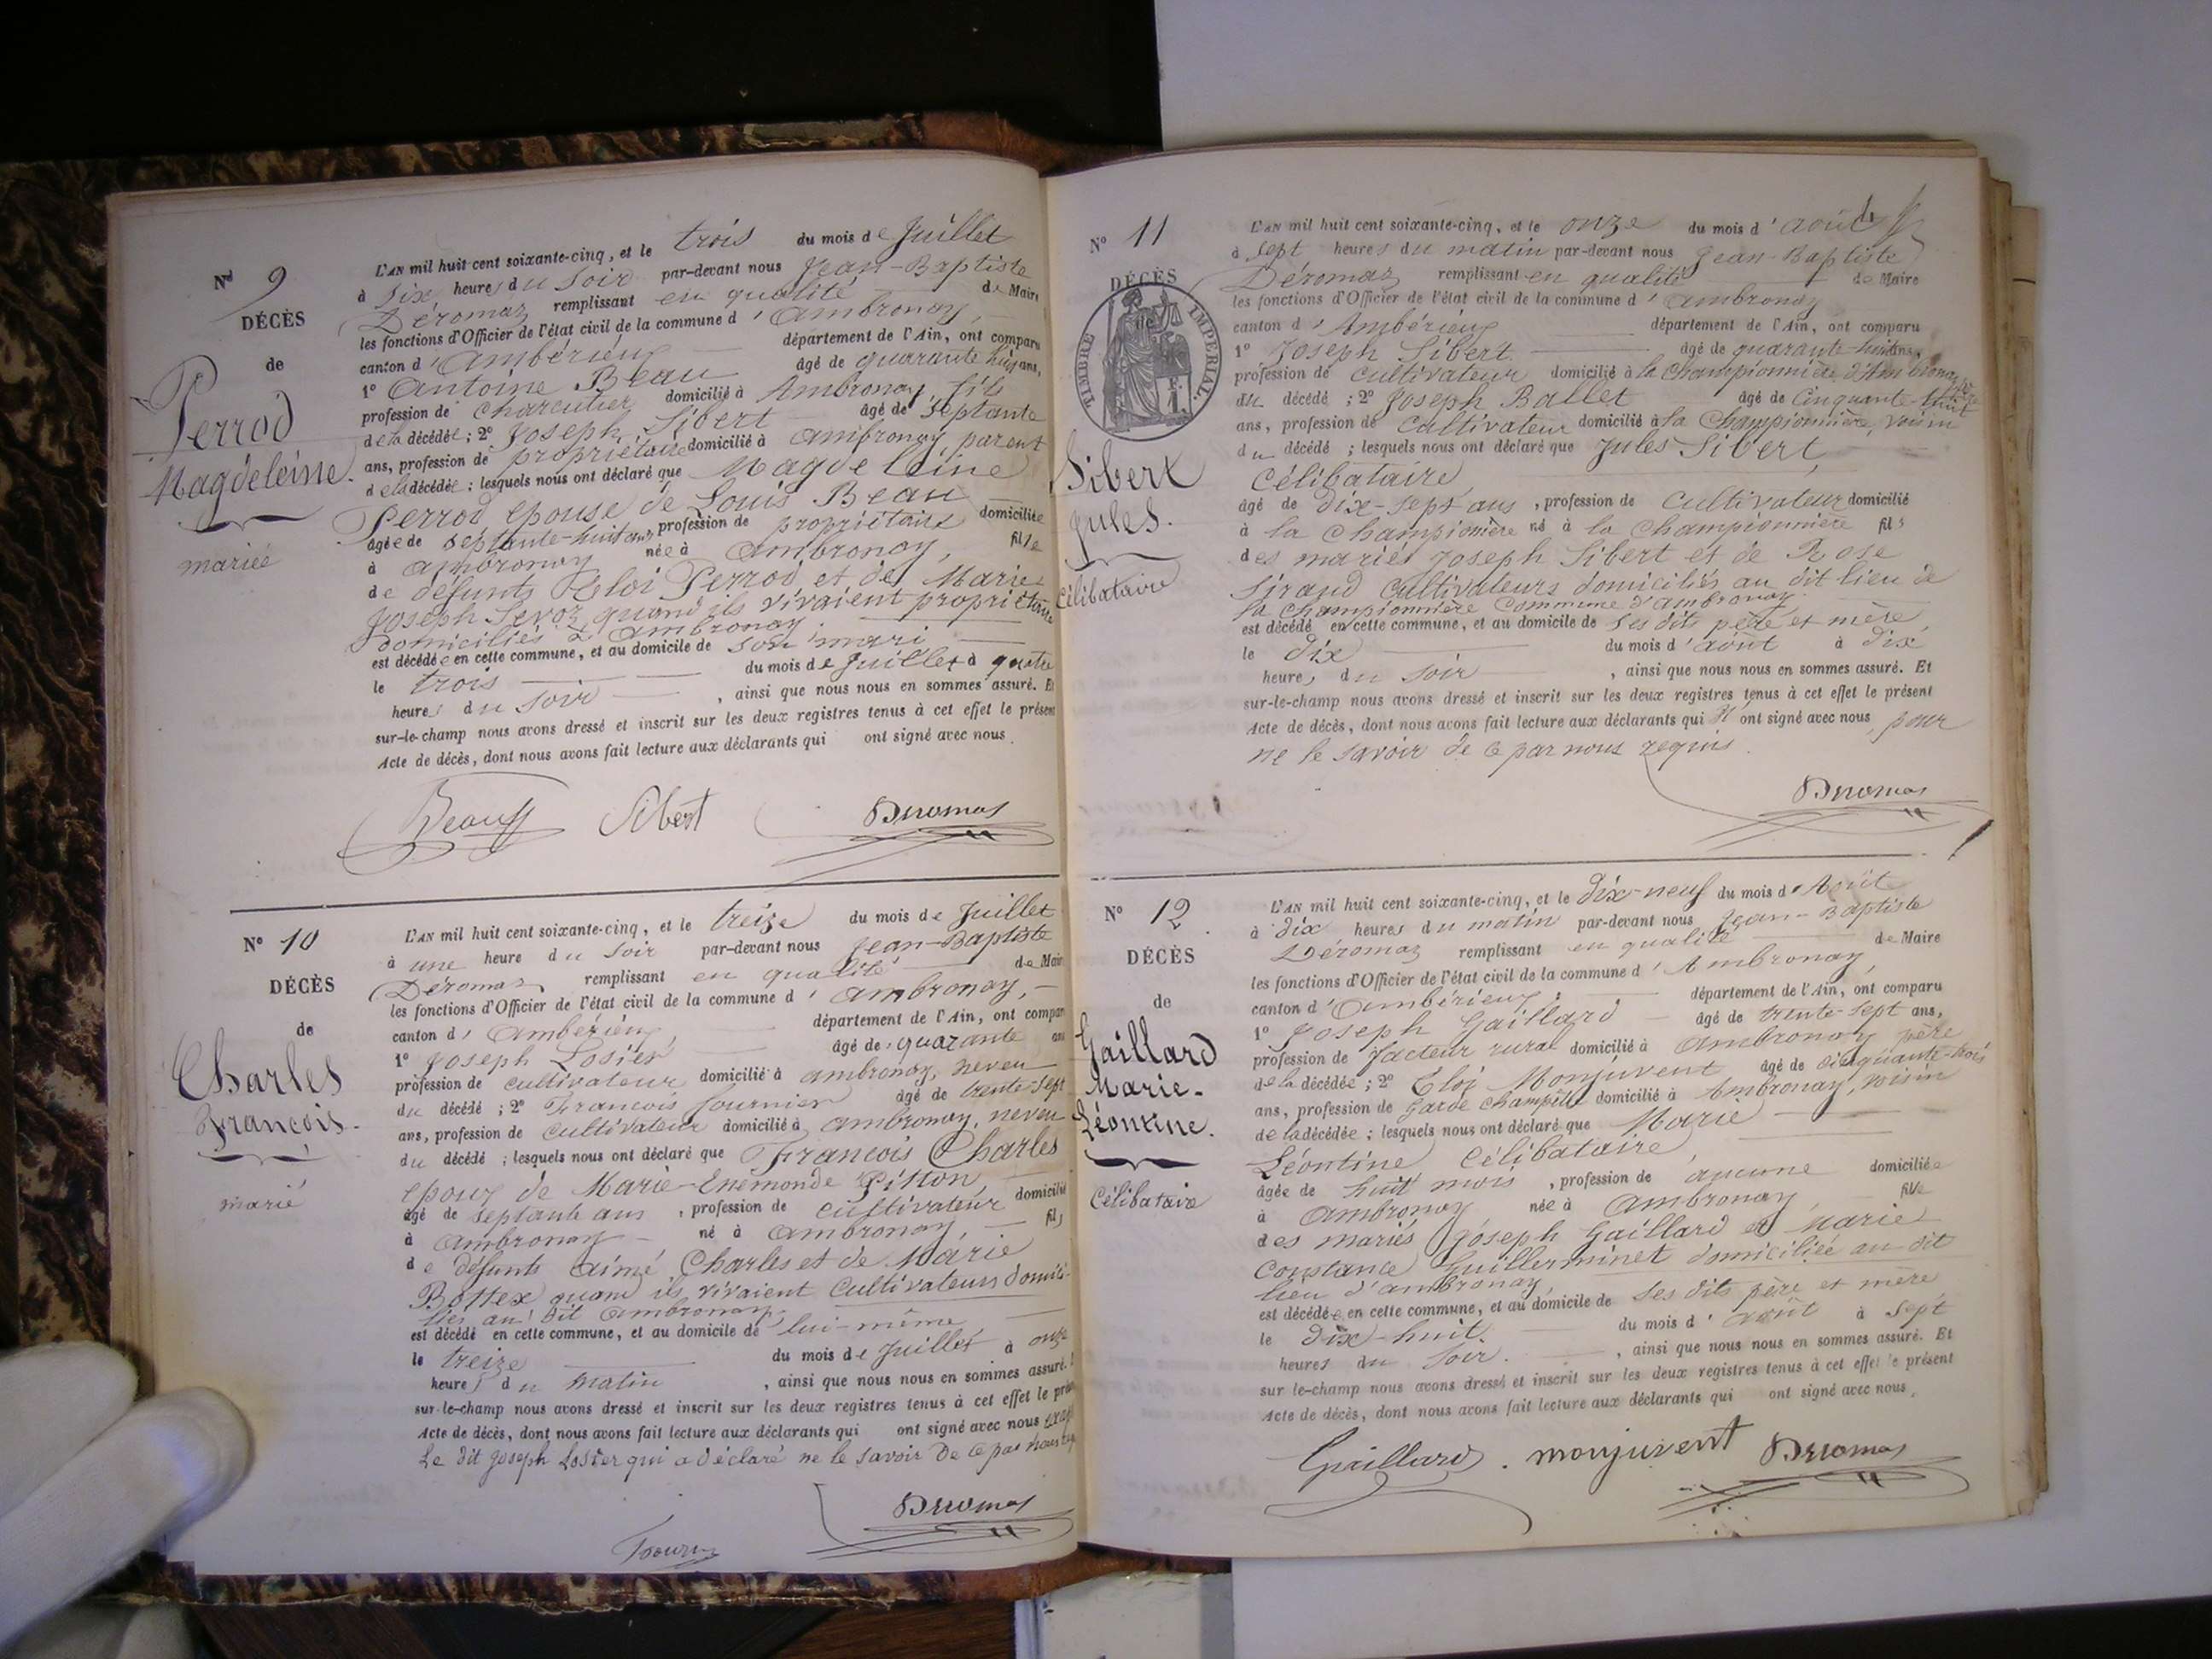 Nd 9
DÉCÈS
de
Perrod
Magdeleine.
mariée
L'AN mil huit cent soixante-cinq, et le trois du mois de Juillet
à Six heures du Soir par-devant nous Jean-Baptiste
Déromas remplissant en qualité de Maire
les fonctions d'Officier de l'état civil de la commune d'Ambronay,
canton d'Ambérieux département de l'Ain, ont comparu
1º Antoine Beau âgé de quarante huit ans,
profession de Charcutier domicilié à Ambronay fils
de la décédée ; 2º Joseph Sibert âgé de Septante
ans, profession de propriétaire domicilié à Ambronay parent
de la décédée ; lesquels nous ont déclaré que Magdeleine
Perrod épouse de Louis Beau
âgée de septante-huit ans, profession de propriétaire domiciliée
à Ambronay née à Ambronay, fille
de défunts Eloi Perrod et de Marie
Joseph quand ils vivaient propriétaires
domiciliés à Ambronay.
est décédée en cette commune, et au domicile de son mari
le trois du mois de Juillet à quatre
heures du soir , ainsi que nous nous en sommes assuré. Et
sur-le-champ nous avons dressé et inscrit sur les deux registres tenus à cet effet le présent
Acte de décès, dont nous avons fait lecture aux déclarants qui ont signé avec nous.
Beau Sibert Deromas
Nº 10
DÉCÈS
de
Charles
François.
marié
L'AN mil huit cent soixante-cinq, et le treize du mois de Juillet
à une heure du Soir par-devant nous Jean-Baptiste
Déromas remplissant en qualité de Mair
les fonctions d'Officier de l'état civil de la commune d'Ambronay,
canton d'Ambérieux département de l'Ain, ont compar
1º Joseph Losier âgé de quarante ans
profession de cultivateur domicilié à Ambronay, neveu
du décédé ; 2º François fournier âgé de trente-sept
ans, profession de cultivateur domicilié à Ambronay, neveu
du décédé ; lesquels nous ont déclaré que François Charles
époux de Marie-Enemonde Pitton,
âgé de septante ans , profession de cultivateur domicilié
à Ambronay né à Ambronay fils
de défunts aimé Charles et de Marie
Bottex quand ils vivaient Cultivateurs domici-
liés au dit Ambronay,
est décédé en cette commune, et au domicile de lui-même
le treize du mois de Juillet à onze
heures du matin , ainsi que nous nous en sommes assuré.
sur-le-champ nous avons dressé et inscrit sur les deux registres tenus à cet effet le prés
Acte de décès, dont nous avons fait lecture aux déclarants qui ont signé avec nous
Le dit Joseph Losier qui a déclaré ne le savoir De ce par nous
Deromas
Nº 11
DÉCÈS
de
TIMBRE IMPÉRIAL.
Sibert
Jules.
Célibataire
L'AN mil huit cent soixante-cinq, et le onze du mois d'août
à Sept heures du matin par-devant nous Jean-Baptiste
Déromas remplissant en qualité de Maire
les fonctions d'Officier de l'état civil de la commune d'Ambronay
canton d'Ambérieux département de l'Ain, ont comparu
1º Joseph Sibert âgé de quarante-huit ans,
profession de cultivateur domicilié à la Championnière d'Ambronay père
du décédé ; 2º Joseph Ballet âgé de Cinquante-huit
ans, profession de Cultivateur domicilié à la Championnière, voisin
du décédé ; lesquels nous ont déclaré que Jules Sibert
Célibataire
âgé de dix-sept ans , profession de Cultivateur domicilié
à la Championière né à la Championnière fils
des mariés Joseph Sibert et de Rose
Siraud Cultivateurs domiciliés au dit lieu de
la Championnière Commune d'Ambronay.
est décédé en cette commune, et au domicile de ses dits père et mère,
le dix du mois d'août à dix
heures du soir , ainsi que nous nous en sommes assuré. Et
sur-le-champ nous avons dressé et inscrit sur les deux registres tenus à cet effet le présent
Acte de décès, dont nous avons fait lecture aux déclarants qui n'ont signé avec nous, pour
ne le savoir de ce par nous requis.
Deromas
Nº 12
DÉCÈS
de
Gaillard
Marie-
Léontine.
Célibataire
L'AN mil huit cent soixante-cinq, et le Dix-neuf du mois d'Août
à dix heures du matin par-devant nous Jean-Baptiste
Déromas remplissant en qualité de Maire
les fonctions d'Officier de l'état civil de la commune d'Ambronay,
canton d'Ambérieux département de l'Ain, ont comparu
1º Joseph Gaillard âgé de trente-sept ans,
profession de facteur rural domicilié à Ambronay père
de la décédée ; 2º Eloi Monjuvent âgé de cinquante-trois
ans, profession de Garde Champêtre domicilié à Ambronay, voisin
de la décédée ; lesquels nous ont déclaré que Marie
Léontine Célibataire
âgée de huit mois , profession de aucune domiciliée
à Ambronay née à Ambronay fille
des mariés Joseph Gaillard et Marie
Constance Guillerminet domiciliée au dit
lieu d'Ambronay
est décédée en cette commune, et au domicile de ses dits père et mère
le dix-huit du mois d'août à Sept
heures du soir. , ainsi que nous nous en sommes assuré. Et
sur le-champ nous avons dressé et inscrit sur les deux registres tenus à cet effet le présent
Acte de décès, dont nous avons fait lecture aux déclarants qui ont signé avec nous.
Gaillard. monjuvent Deromas